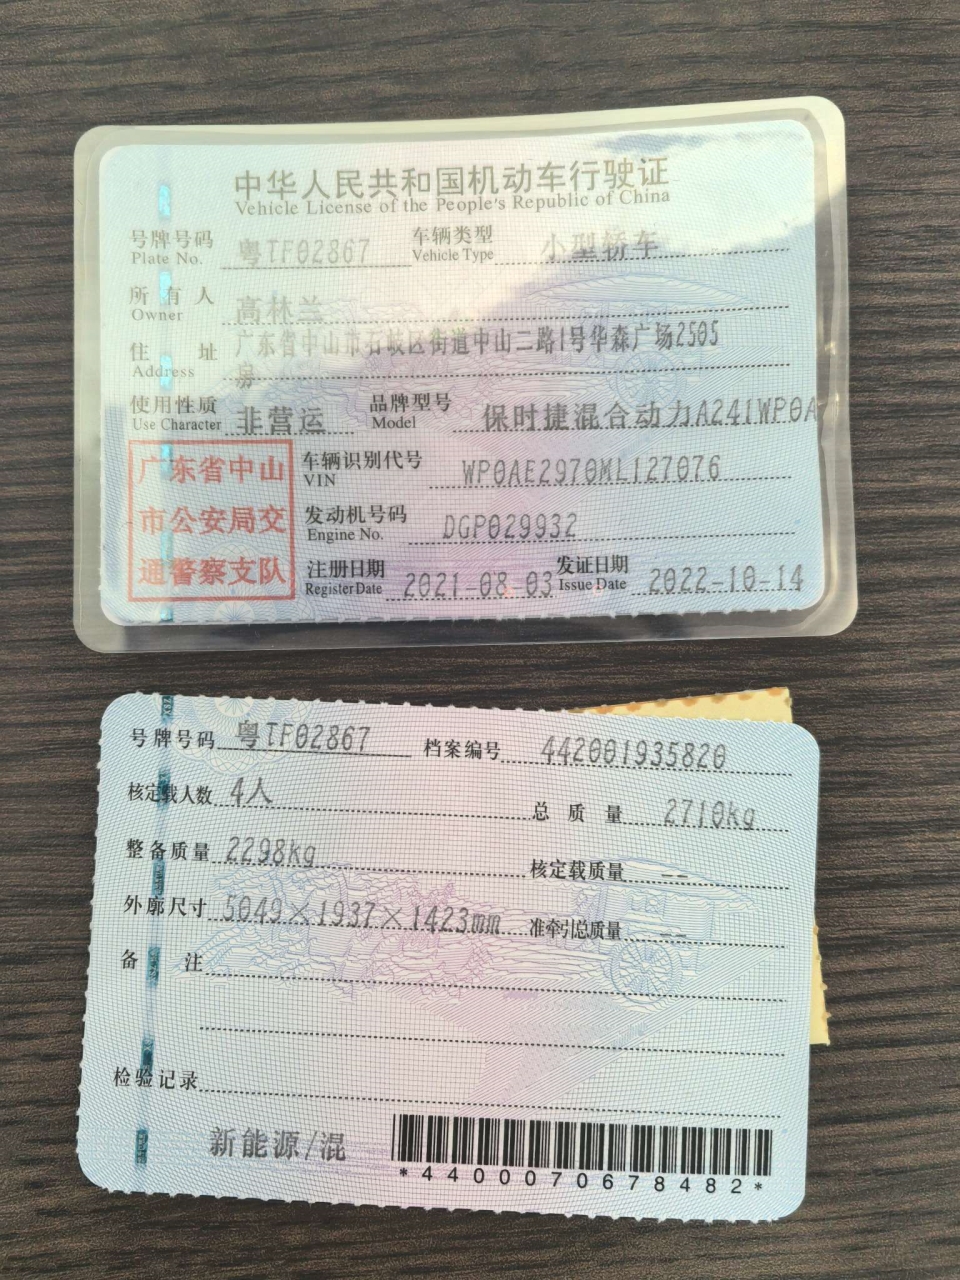 中华人民共和国机动车行驶证
Vehicle License of the People's Republic of China
号牌号码 粤TF02867 车辆类型 小型轿车
Plate No. Vehicle Type
所有人 高林兰
Owner
住址 广东省中山市石岐区街道中山二路1号华森广场2505
Address 房
使用性质 非营运 品牌型号 保时捷混合动力A241WP0A
Use Character Model
广东省中山
市公安局交
通警察支队
车辆识别代号 WP0AE2970ML127076
VIN
发动机号码 DGP029932
Engine No.
注册日期 2021-08-03 发证日期 2022-10-14
Register Date Issue Date
号牌号码 粤TF02867 档案编号 442001935820
核定载人数 4人 总质量 2710kg
整备质量 2298kg 核定载质量 --
外廓尺寸 5049×1937×1423mm 准牵引总质量 --
备注
检验记录
新能源/混
*4400070678482*